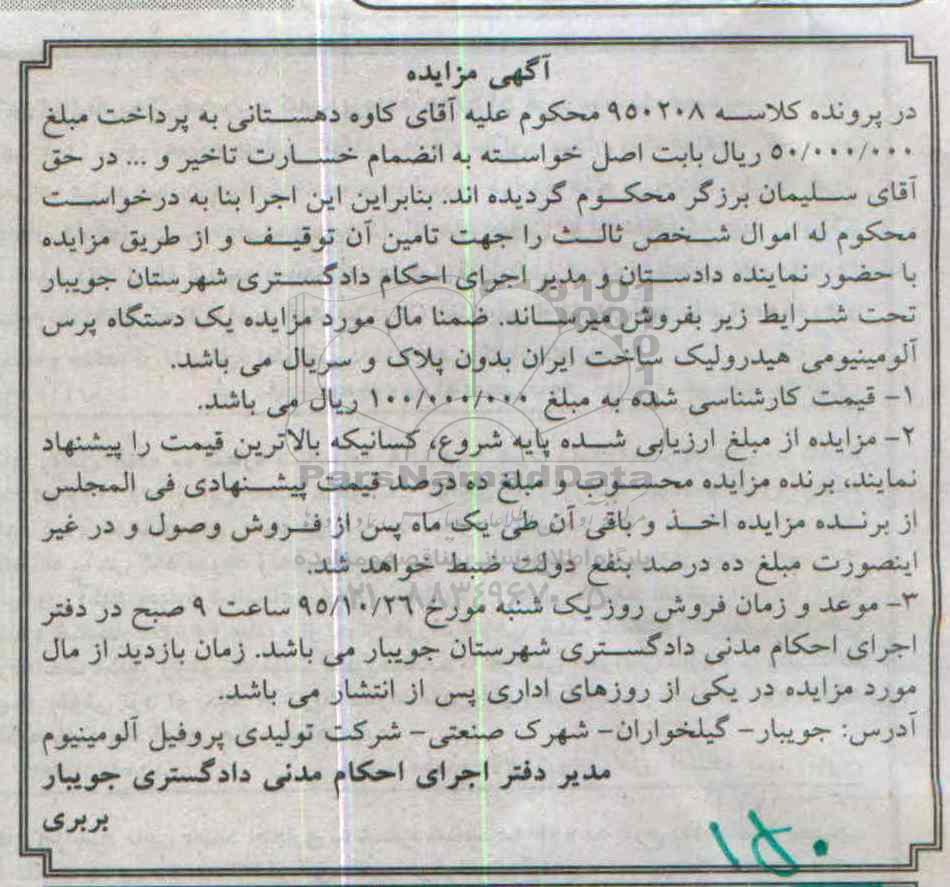 آگهی مزایده
در پرونده کلاسه ۹۵۰۲۰۸ محکوم علیه آقای کاوه دهستانی به پرداخت مبلغ
۵۰/۰۰۰/۰۰۰ ریال بابت اصل خواسته به انضمام خسارت تاخیر و ... در حق
آقای سلیمان برزگر محکوم گردیده اند. بنابراین این اجرا بنا به درخواست
محکوم له اموال شخص ثالث را جهت تامین آن توقیف و از طریق مزایده
با حضور نماینده دادستان و مدیر اجرای احکام دادگستری شهرستان جویبار
تحت شرایط زیر بفروش میرساند. ضمنا مال مورد مزایده یک دستگاه پرس
آلومینیومی هیدرولیک ساخت ایران بدون پلاک و سریال می باشد.
۱- قیمت کارشناسی شده به مبلغ ۱۰۰/۰۰۰/۰۰۰ ریال می باشد.
۲- مزایده از مبلغ ارزیابی شده پایه شروع، کسانیکه بالاترین قیمت را پیشنهاد
نمایند، برنده مزایده محسوب و مبلغ ده درصد قیمت پیشنهادی فی المجلس
از برنده مزایده اخذ و باقی آن طی یک ماه پس از فروش وصول و در غیر
اینصورت مبلغ ده درصد بنفع دولت ضبط خواهد شد.
۳- موعد و زمان فروش روز یک شنبه مورخ ۹۵/۱۰/۲۶ ساعت ۹ صبح در دفتر
اجرای احکام مدنی دادگستری شهرستان جویبار می باشد. زمان بازدید از مال
مورد مزایده در یکی از روزهای اداری پس از انتشار می باشد.
آدرس: جویبار- گیلخواران- شهرک صنعتی- شرکت تولیدی پروفیل آلومینیوم
مدیر دفتر اجرای احکام مدنی دادگستری جویبار
بربری
ParsNamadData